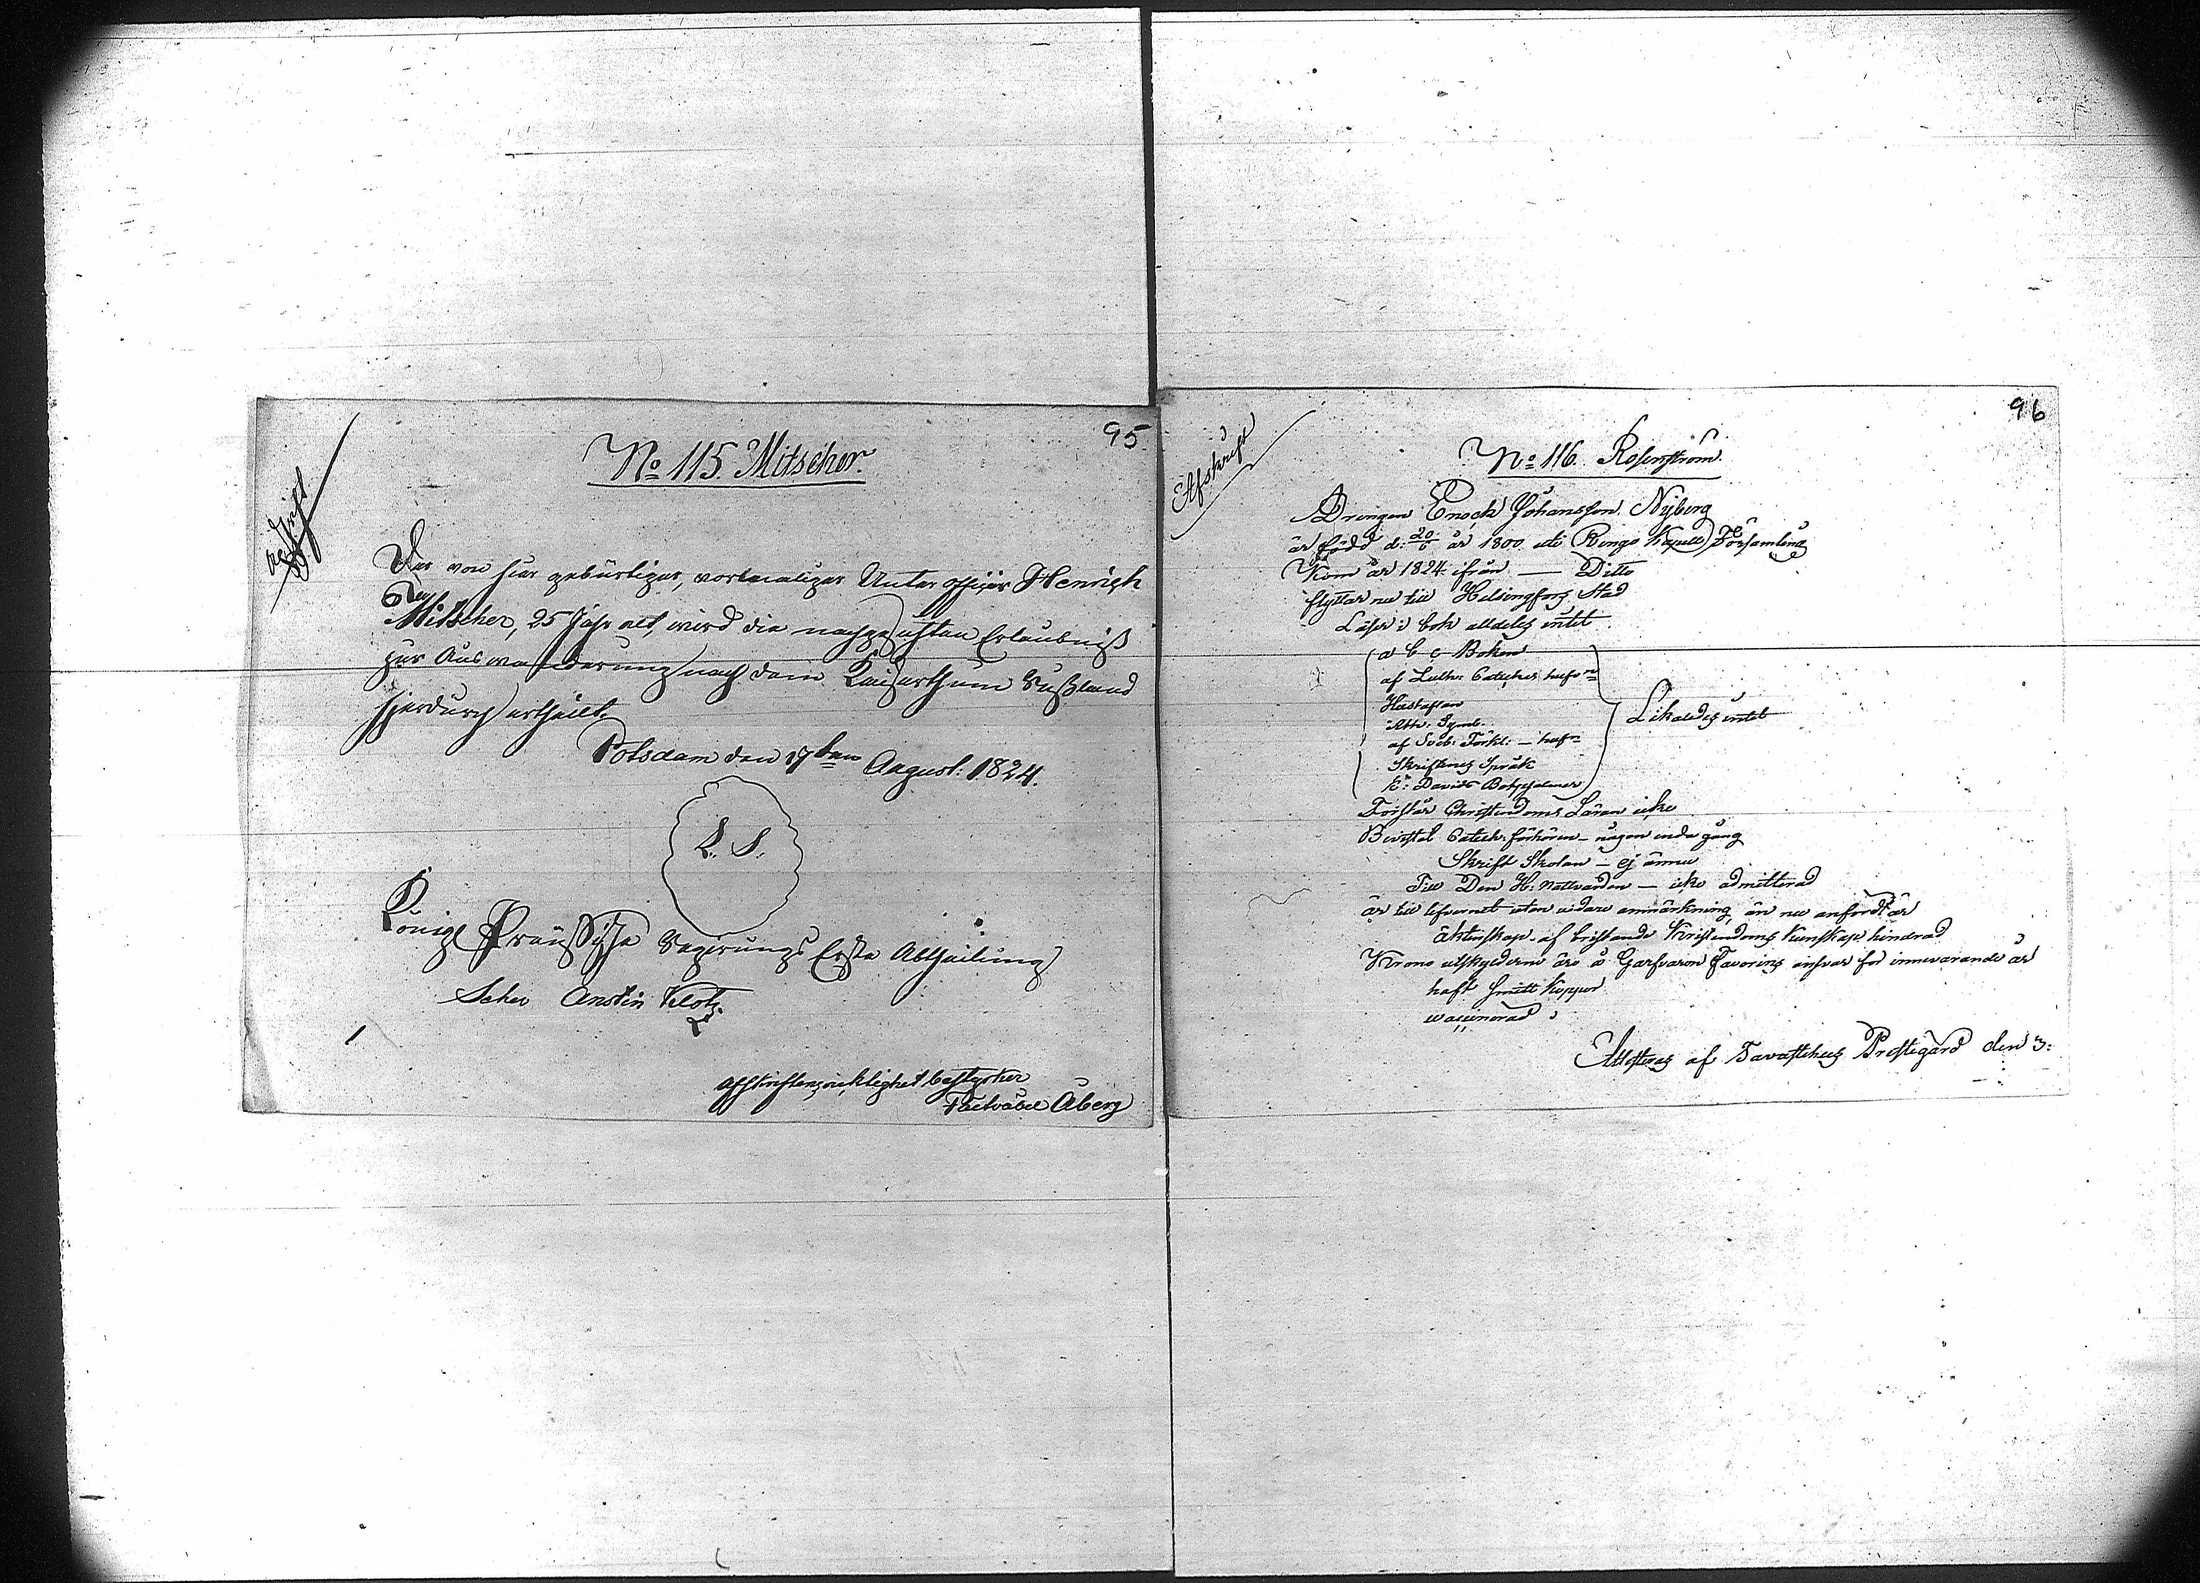 95
Abschrift
No 115. Mitscher.
Der von hier gebürtiger, vormaliger Unter officier Henrich
Mitscher, 25 Jahr alt, wird die nachgesuchten Erlaubniß
zur Auswanderung nach dem Kaiserthum Rußland
hierdurch ertheilt.
Potsdam den 17ten August: 1824.
L. S.
Königl Preussische Regierungs Erste Abtheilung
Afskriftens riktighet bestyrker
Åberg
96
Afskrift
No 116. Rosenström.
Drengen Enoch Johansson Nyberg
är född d: 20/6 år 1800 uti Rengo Kapell Församling
Kom år 1824 ifrån — Ditto
flyttar nu till Helsingfors Stad
Läser i bok alldeles intet
a b c Boken
af Luth: Cateches hufv
Hustaflan
Ath: Symb.
af Sveb: Förkl: — hufv
Skriftenes Språk
K: Davids Botpsalmer
Likaledes intet
Förstår Christendoms Läran icke
Bevistat Catech: förhören – någon enda gång
Skrift Skolan – ej ännu
Till Den H: Nattvarden — icke admitterad
är till lefvernet utan vidare anmärkning, än nu anfördt är
äktenskap af bristande Kristendoms Kunskap hindrad
Krono utskylderne äro å Garfvaren Favorins ansvar för innevarande år
haft Smitt Koppor
vaccinerad
Attesteras af Tavastehus Prostegård den 3: